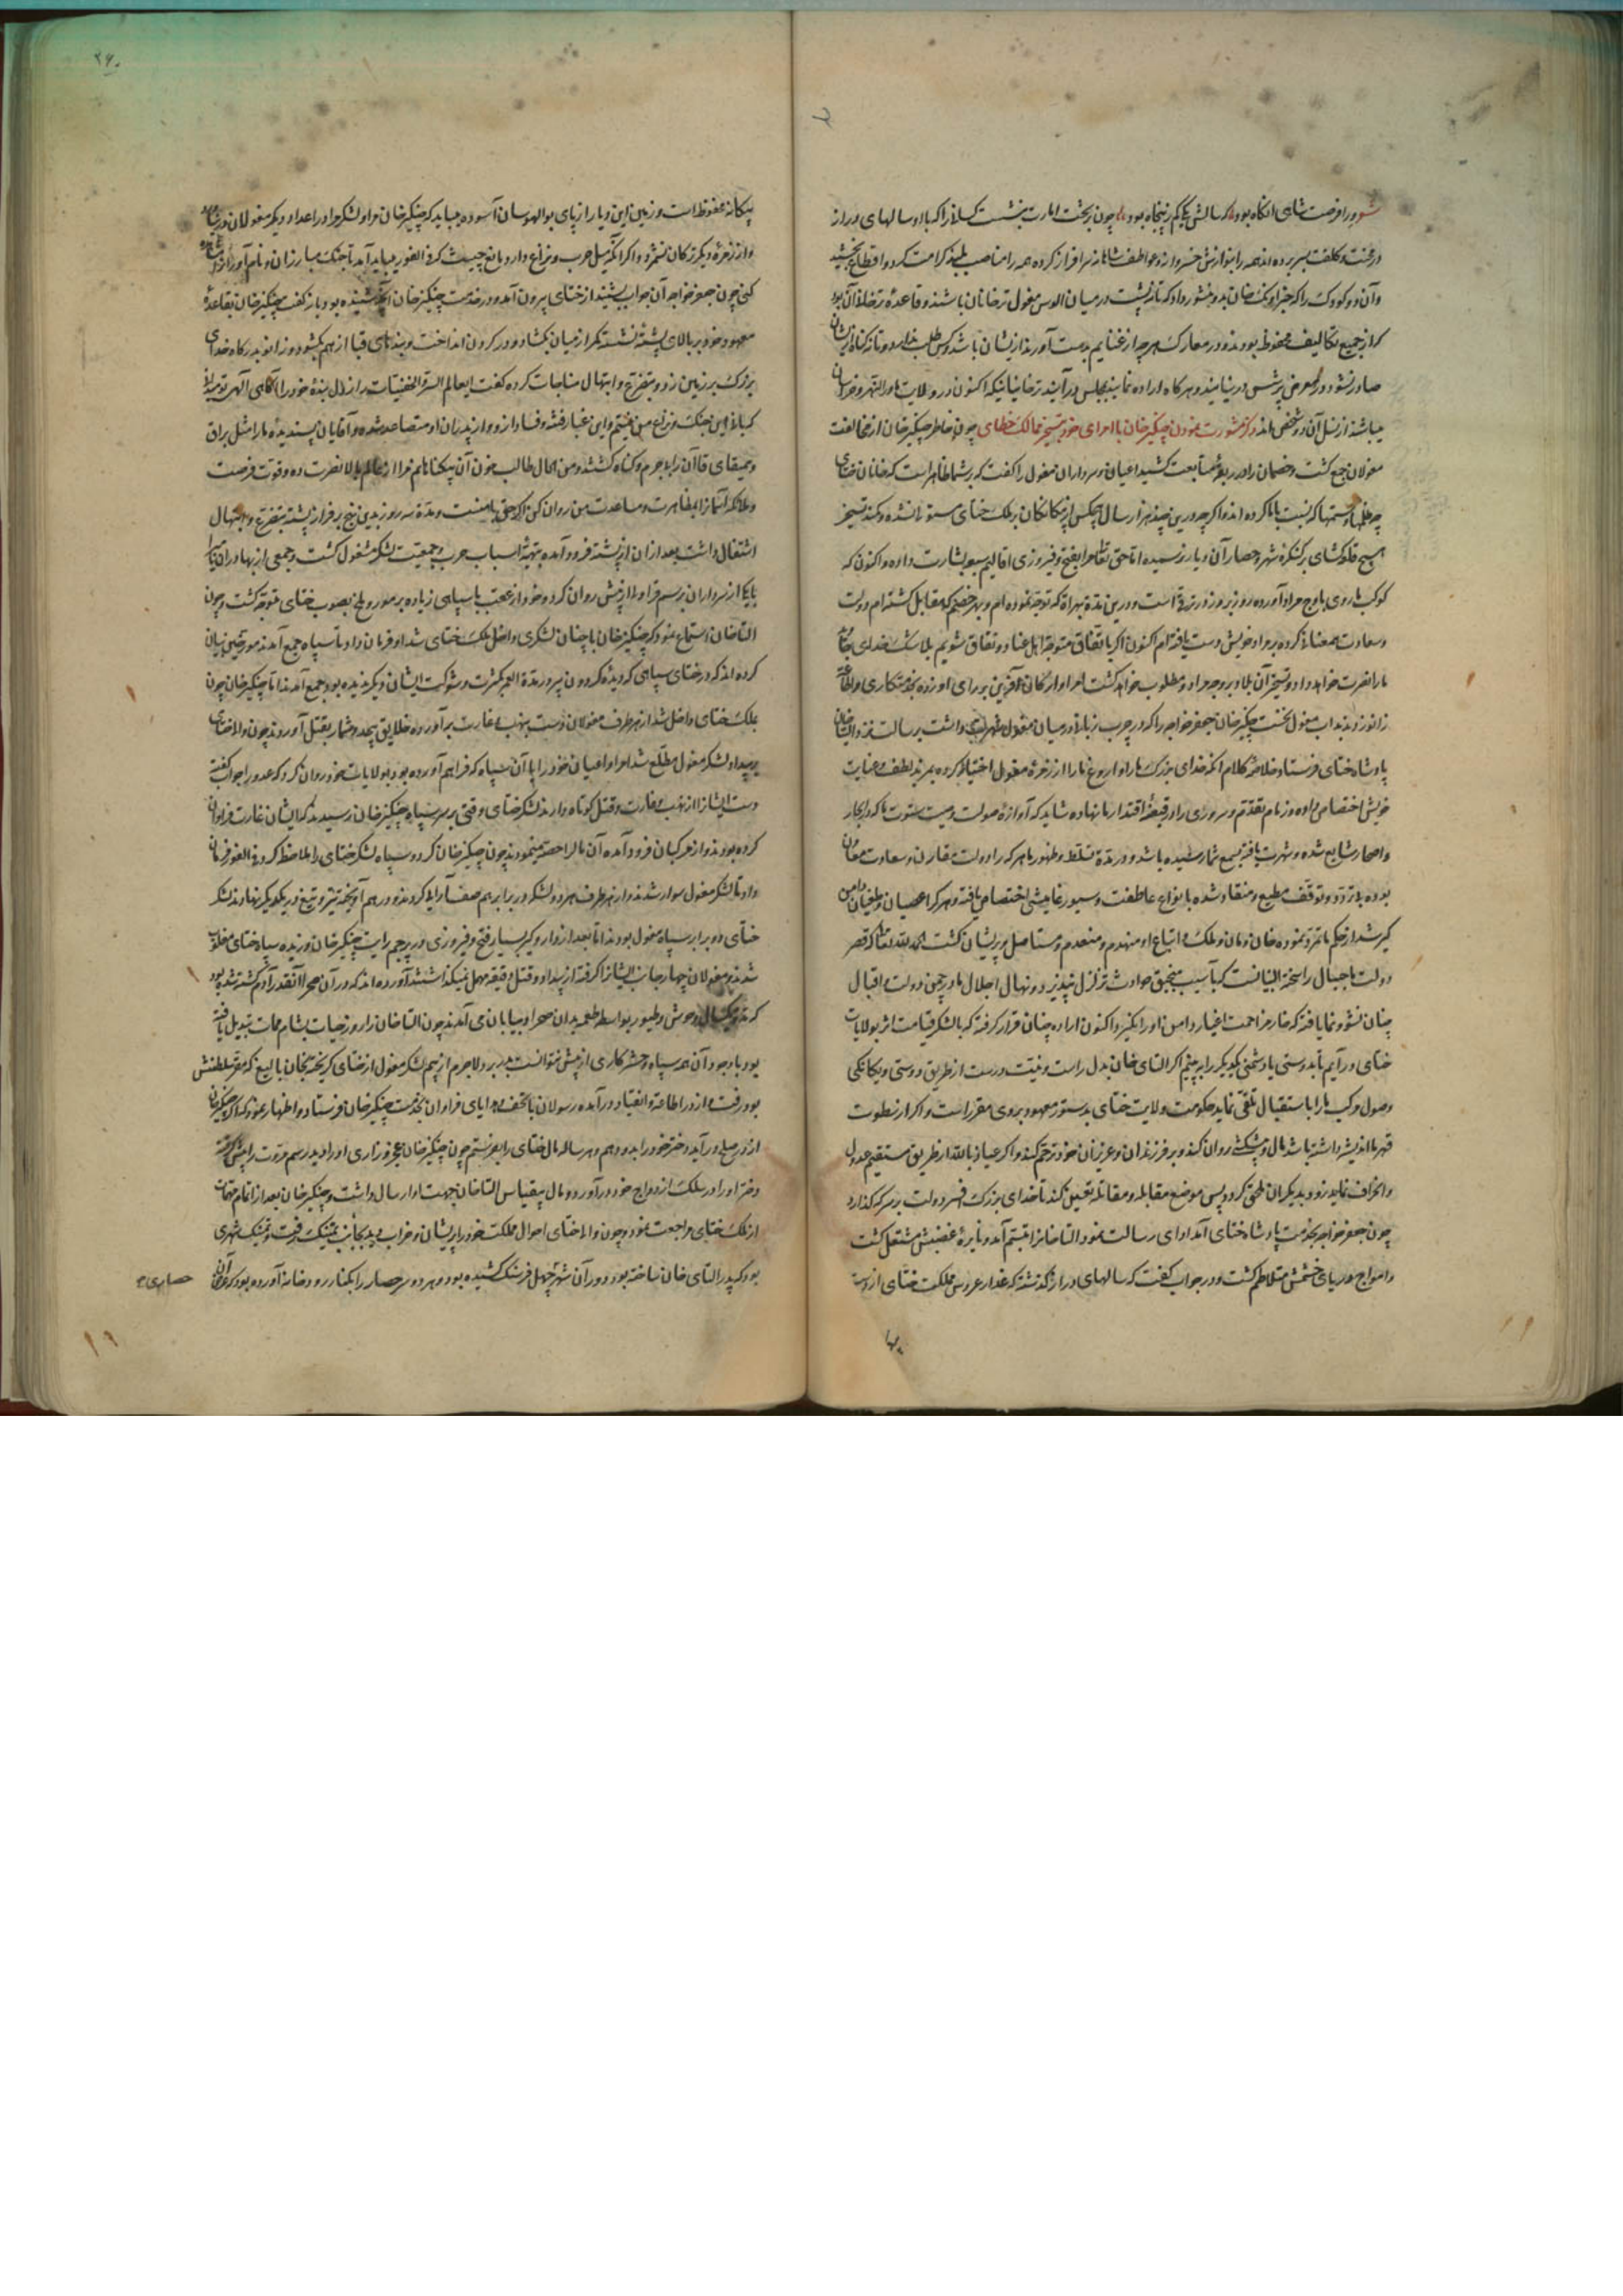 شود و را فرصت شاهی انگاه بود که سالش یکی کم ز پنجاه بود چون بر تخت امارت بنشست کسانی را که با او سالهای دراز
در محنت و کلفت بسر برده اند همه را بنوازش خسروانه و عواطف شاهانه سرافراز کرده همه را مناصب بلند کرامت کرد و اقطاع بخشید
وآن دو کودک را که خبر اونک خان بدو منشور داد که تا نه پشت در میان الوس مغول ترخانان باشند و قاعده ترخانی آن بود
که از جمیع تکالیف محفوظ بودند و در معارک هر چه از غنایم بدست آورند از یشان باشد و کس طلب ندارد و تا نه کناه از یشان
صادر نشود در معرض پرسش در نیایند و هر کاه اراده نمایند بمجلس در آیند ترخانیانیکه اکنون در ولایت ماورالنهر و خراسان
میباشند از نسل آن دو شخص اند ذکر مشورت نمودن چنکیز خان با امرای خود و تسخیر ممالک خطای چون خاطر چنکیز خان از مخالفت
مغولان جمع کشت و خصمان را در ربقه متابعت کشید اعیان و سرداران مغول را کفت که بر شما ظاهر است که خانان ختای
چه ظلمها و ستمها که نسبت بما کرده اند و اکر چه درین چند هزار سال هیچکس از نیاکان بر ملک ختای ستور نرانده و کمند تسخیر
هیچ قلعه کشای بر کنکره شهر و حصار آن دیار نرسیده اما حق تعالی مرا بفتح و فیروزی اقالیم سبع بشارت داده و اکنون که
کوکب ما روی باوج مراد آورده روز بروز در ترقی است و درین مدة بهر اة که توجه نموده ام و بهر خصم که مقابل کشته ام دولت
وسعادت همعنانی کرده بر مراد خویش دست یافته ام اکنون اکر باتفاق متوجه اهل عناد و نفاق شویم بلا شک خدای تعالی
ما را نصرت خواهد داد و تسخیر آن بلاد بر وجه مراد و مطلوب خواهد کشت امرا و ارکان آفرین بر رای او زده بخدمتکاری و اطاعت
زانو زدند بداب مغول نخست چنکیز خان جعفر خواجه را که در چرب زبانی در میان مغول شهرتی داشت برسالت نزد التای خان
پادشاه ختای فرستاد خلاصه کلام انکه خدای بزرک ما را و اروغ ما را از زمره مغول اختیار کرده بمزید لطف و عنایت
خویش اختصاص داده و زمام تقدم و سروری را در قبضه اقتدار ما نهاده شاید که آوازه صولت وصیت سطوت ما که در اقطار
و امصار شایع شده و شهرت یافته بسمع شما رسیده باشد و در مدة تسلط و ظهور ما هر که را دولت مقارن و سعادت معاون
بوده بی تردد و توقف مطیع و منقاد شده بانواع عاطفت و سیورغامیشی اختصاص یافته و هر که را عصیان و طغیان دامن
کیر شد از حکم ما تمرد نموده خان و مان و ملک و اتباع او منهدم و منعدم و مستاصل و پریشان کشت الحمد لله تعالی که قصر
دولت ما جبال راسخة البنیانست که بآسیب منجنیق حوادث تزلزل نپذیرد و نهال اجلال ما در چمن دولت و اقبال
چنان نشو و نما یافته که خار مزاحمت اغیار دامن او را نکیرد اکنون اراده چنان قرار کرفته که با لشکر قیامت اثر بولایات
ختای در آییم تا بدوستی یا دشمنی یکدیکر را به بینیم اکر التای خان بدل راست و نیت درست از طریق دوستی و یکانکی
وصول موکب ما را باستقبال تلقی نماید حکومت ولایت ختای بدستور معهود بروی مقرر است و اکر از سطوت
قهر ما اندیشه داشته باشد مال و پیشکش روان کند و بر فرزندان و عزیزان خود ترحم کند و اکر عیاذ بالله از طریق مستقیم عدول
و انحراف نماید زود بدیکران ملحق کردد پس موضع مقابله و مقاتله تعیین کند تا خدای بزرک افسر دولت بر سر که کذارد
چون جعفر خواجه بخدمت پادشاه ختای آمد ادای رسالت نمود التاخانرا تبسم آمد و نایره غضبش مشتعل کشت
و امواج دریای خشمش متلاطم کشت و در جواب کفت که سالهای دراز کذشته که عذار عروس مملکت ختای از دست
۲۶۰
بیکانه محفوظ است و زمین این دیار از پای بوالهوسان آسوده میباید که چنکیز خان مرا و لشکر مرا در اعداد دیکر مغولان در شمار
واز زمره دیکر ترکان نشمرد و اکر آنکه میل حرب و نزاع دارد مانع چیست که فی الفور میباید آمد تا جنک مبارزان و نام آوران
کنی چون جعفر خواجه آن جواب بشنید از ختای بیرون آمد و در خدمت چنکیز خان آنچه شنیده بود باز کفت چنکیز خان بقاعده
معهود خود بر بالای پشته نشسته کمر از میان بکشاد و در کردن انداخت و بندهای قبا از هم بکشود و زانو بدرکاه خدای
بزرک بر زمین زد و بتضرع و ابتهال مناجات کرده کفت ای عالم السر و الخفیات راز دل بنده خود را آکاهی الهی تو میدانی
که بانی این جنک و نزاع من نیستم و این غبار فتنه و فساد از و و از پدران او متصاعد شده و آقایان پسندیده ما را مثل براق
و همیقای قاآن را بی جرم و کناه کشتند و من الحال طالب خون آن بیکناهانم مرا از عالم بالا نصرت ده و قوت فرصت
و ملائکه آسمانرا بمظاهرت و مساعدت من روان کن که حق با منست و مدة سه روز بدین نهج بر فراز پشته بتضرع و ابتهال
اشتغال داشت بعد از ان از پشته فرود آمده بتهیه اسباب حرب و جمعیت لشکر مشغول کشت و جمعی از بهادران را
با یکی از سرداران برسم قراولی از پیش روان کرد و خود از عقب با سپاهی زیاده بر مور و ملخ بصوب ختای متوجه کشت و چون
التاخان استماع نمود که چنکیز خان با چنان لشکری داخل ملک ختای شد او فرمان داد تا سپاه جمع آمدند مورخین بیان
کرده اند که در ختای سپاهی که دیده کردون پیر در مدة العمر بکثرت و شوکت ایشان دیکر ندیده بود جمع آمدند تا چنکیز خان چون
بملک ختای داخل شد از هر طرف مغولان دست بنهب و غارت برآورده خلایق بیحد و شمار بقتل آوردند چون والا ختای
بر بیداد لشکر مغول مطلع شد امرا و اعیان خود را با آن سپاه که فراهم آورده بود بولایات خود روان کرد که عدو را جواب کفته
دست ایشانرا از نهب و غارت و قتل کوتاه دارند لشکر ختای وقتی بر سر سپاه چنکیز خان رسیدند که ایشان غارت فراوان
کرده بودند و از مرکبان فرود آمده آن مال را حصه مینمودند چون چنکیز خان کرد سپاه لشکر ختای را ملاحظه کرد فی الفور فرمان
داد تا لشکر مغول سوار شدند و از هر طرف هر دو لشکر در برابر هم صف آرایی کردند و در هم آویخته تیر و تیغ در یکدیکر نهادند لشکر
ختای دو برابر سپاه مغول بودند اما بعد از دار و کیر بسیار فتح و فیروزی در پرچم رایت چنکیز خان وزیده سپاه ختای مغلوب
شدند و مغولان چهار جانب ایشانرا کرفته از بیداد و قتل دقیقه مهمل نمیکذاشتند آورده اند که در آن صحرا آنقدر آدم کشته شده بود
که تا یکسال وحوش و طیور بواسطه طعمه بدان صحرا و بیابان می آمدند چون التاخان را روز حیات بشام ممات تبدیل یافته
بود با وجود آن همه سپاه و حشر کاری از پیش نتوانست برد لاجرم از بیم لشکر مغول از ختای کریخته بخان بالیغ که مقر سلطنتش
بود رفت و از در اطاعة و انقیاد در آمده رسولان با تحف و هدایای فراوان بخدمت چنکیز خان فرستاد و اظهار نمود که اکر چنکیز خان
از در صلح در آید دختر خود را بدو دهم و هر ساله مال ختای را بفرستم چون چنکیز خان عجز و زاری او را دید رسم مروت را پیش کرفته
دختر او را در سلک ازدواج خود در آورد و مال بیقیاس التاخان جهت او ارسال داشت و چنکیز خان بعد از اتمام مهمات
از ملک ختای مراجعت نمود و چون والا ختای احوال مملکت خود را پریشان و خراب دید بجانب تمنیک رفت و تمنیک شهری
بود که پدر التای خان ساخته بود و دور آن شهر چهل فرسنک کشیده بود و هر دو سر حصار را بکنار رودخانه آورده بود که عرض آن
حصاری